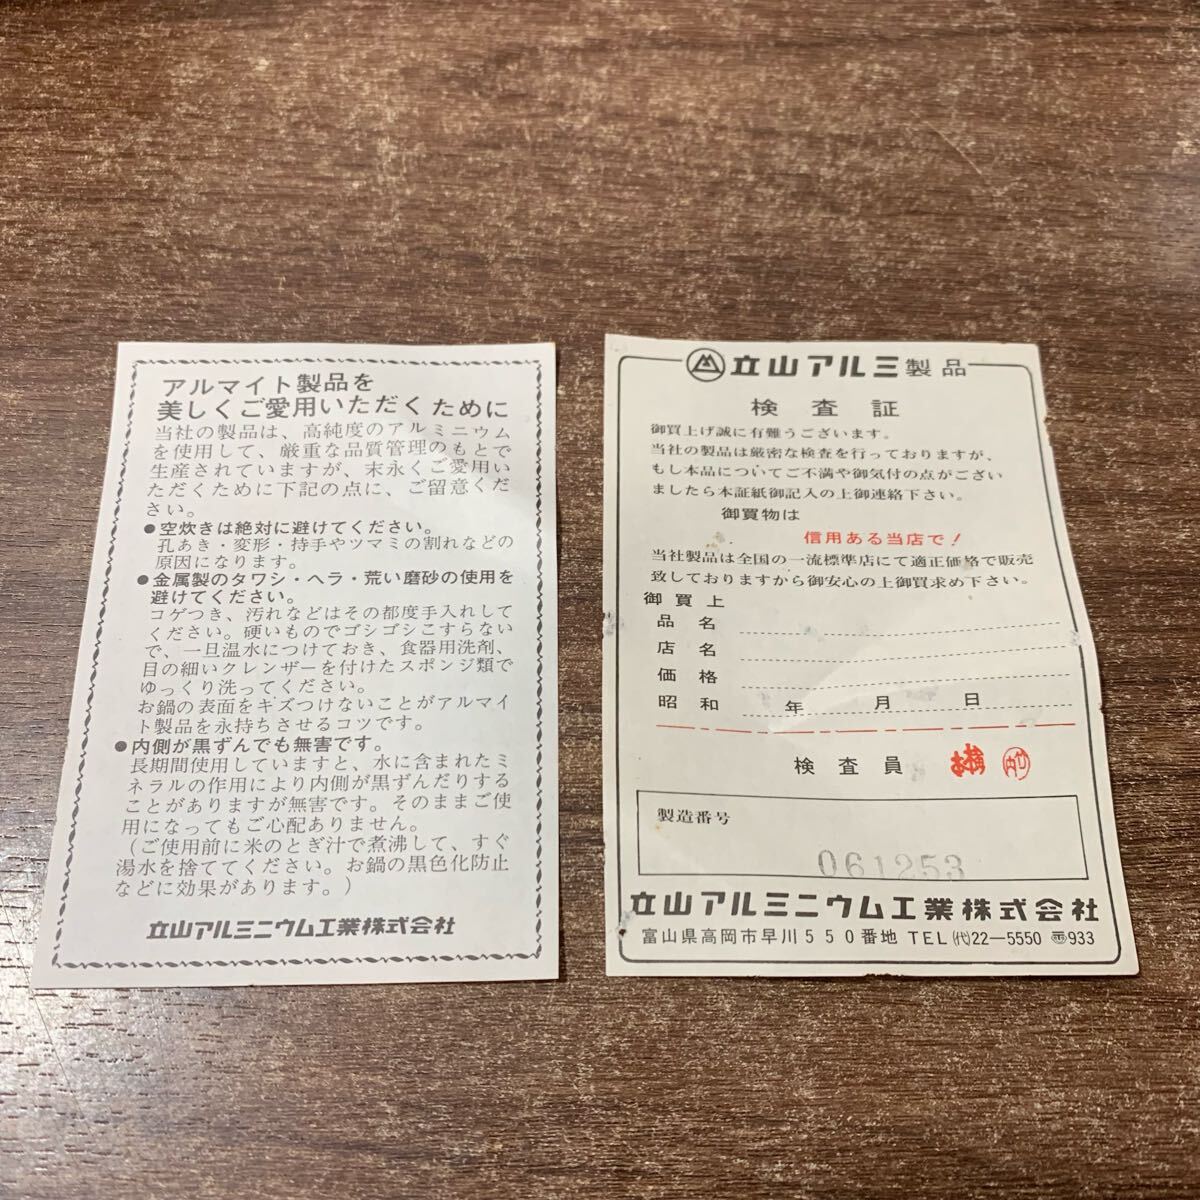 アルマイト製品を
美しくご愛用いただくために
当社の製品は、高純度のアルミニウム
を使用して、厳重な品質管理のもとで
生産されていますが、末永くご愛用い
ただくために下記の点に、ご留意くだ
さい。
●空炊きは絶対に避けてください。
孔あき・変形・持手やツマミの割れなどの
原因になります。
●金属製のタワシ・ヘラ・荒い磨砂の使用を
避けてください。
コゲつき、汚れなどはその都度手入れして
ください。硬いものでゴシゴシこすらない
で、一旦温水につけておき、食器用洗剤、
目の細いクレンザーを付けたスポンジ類で
ゆっくり洗ってください。
お鍋の表面をキズつけないことがアルマイ
ト製品を永持ちさせるコツです。
●内側が黒ずんでも無害です。
長期間使用していますと、水に含まれたミ
ネラルの作用により内側が黒ずんだりする
ことがありますが無害です。そのままご使
用になってもご心配ありません。
(ご使用前に米のとぎ汁で煮沸して、すぐ
湯水を捨ててください。お鍋の黒色化防止
などに効果があります。)
立山アルミニウム工業株式会社
立山アルミ製品
検査証
御買上げ誠に有難うございます。
当社の製品は厳密な検査を行っておりますが、
もし本品についてご不満や御気付の点がござい
ましたら本証紙御記入の上御連絡下さい。
御買物は
信用ある当店で!
当社製品は全国の一流標準店にて適正価格で販売
致しておりますから御安心の上御買求め下さい。
御買上
品名
店名
価格
昭和 年 月 日
検査員 竹内
製造番号
061253
立山アルミニウム工業株式会社
富山県高岡市早川550番地 TEL(代)22-5550 〠933